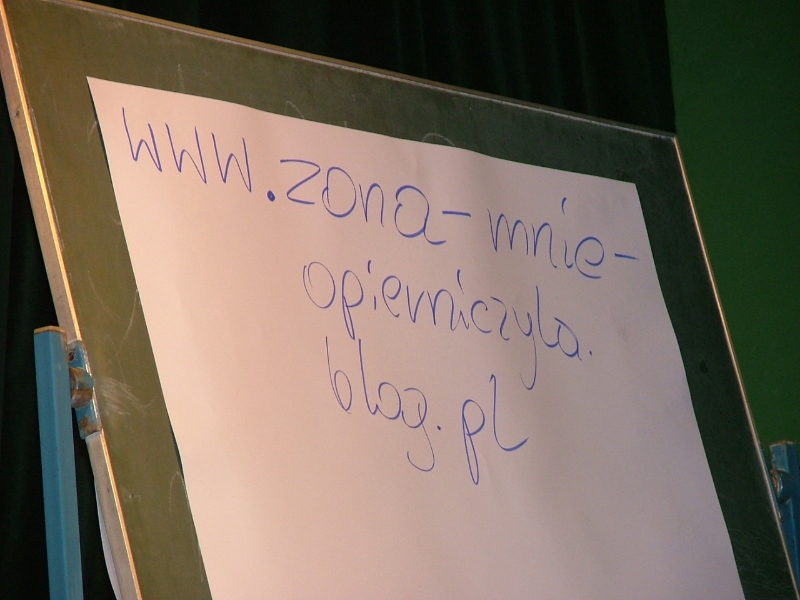 www.zona-mnie-
opierniczyla.
blog.pl